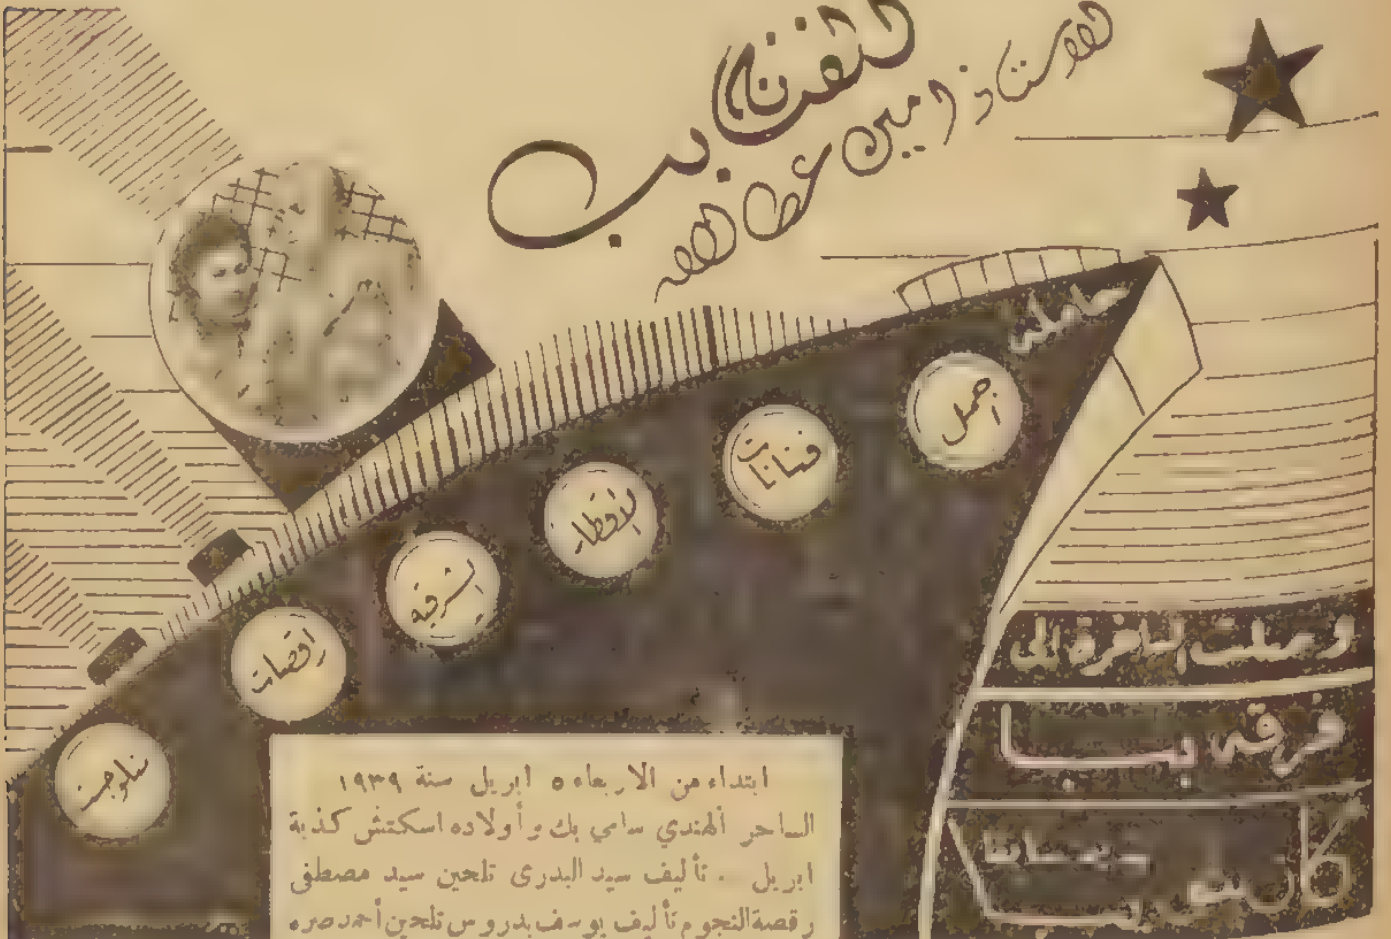 الأستاذ امين عطا الله
حاملة
اجمل
فنانات
الاقطار
الشرقية
راقصات
وصلت الباخرة الى
فرقة ببا
ابتداء من الاربعاء ٥ ابريل سنة ١٩٣٩
الساحر الهندي سامي بك وأولاده اسكتش كذبة
ابريل - تأليف سيد البدرى تلحين سيد مصطفى
رقصة النجوم تأليف يوسف بدروس تلحين أحمد صبره